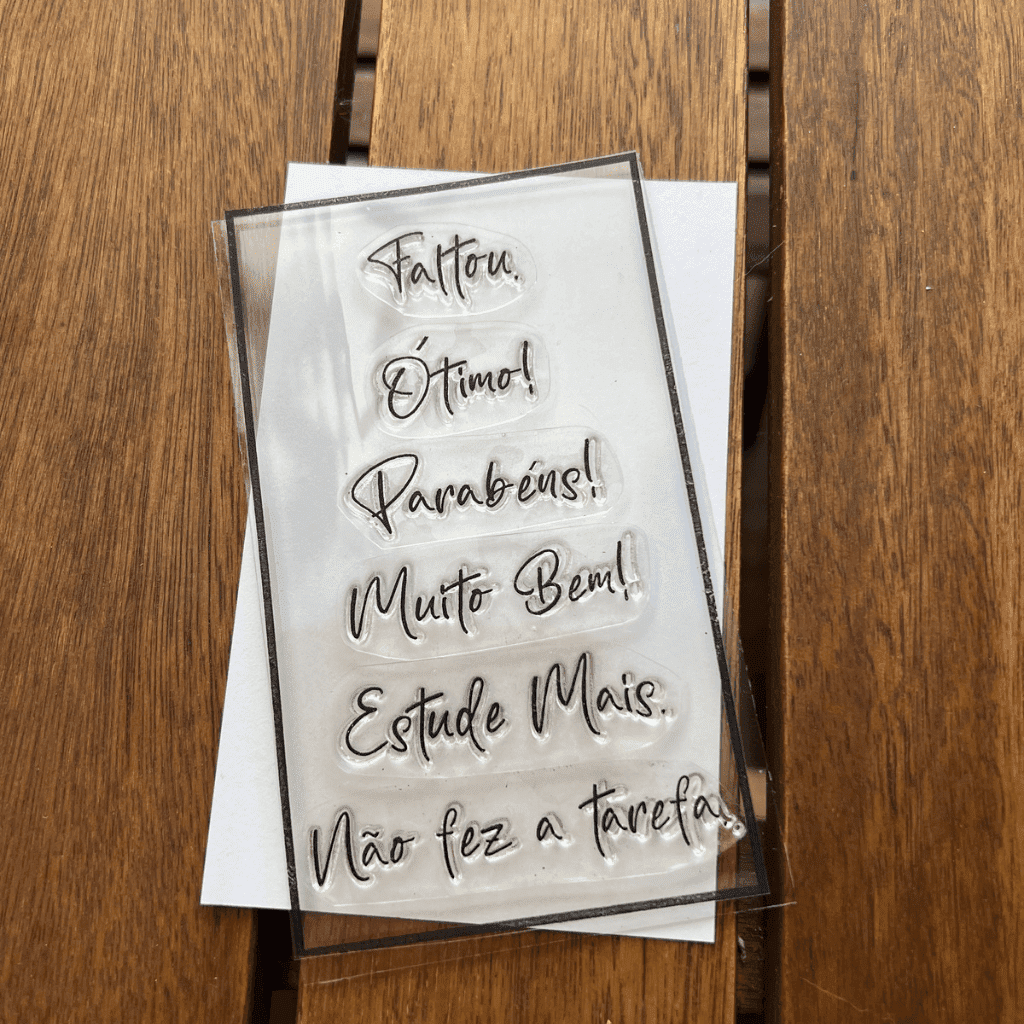 Faltou.
Ótimo!
Parabéns!
Muito Bem!
Estude Mais.
Não fez a tarefa.